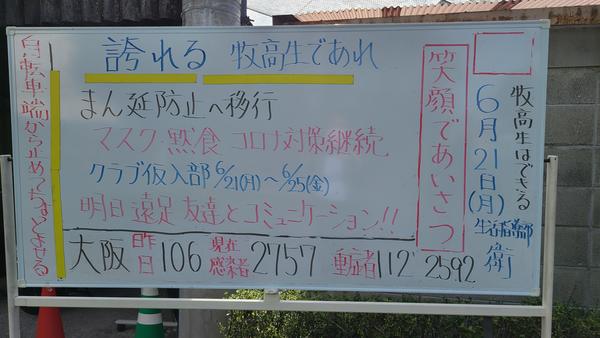 誇れる 牧高生であれ
まん延防止へ移行
マスク 黙食 コロナ対策継続
クラブ仮入部 6/21(月)～6/25(金)
明日 遠足 友達とコミュニケーション!!
大阪 昨日 106 現在感染者 2757 重症者 112 2592
笑顔であいさつ
牧高生はできる
6月21日(月)
生活指導部
衛
自転車端から止めてちゃんとよせる